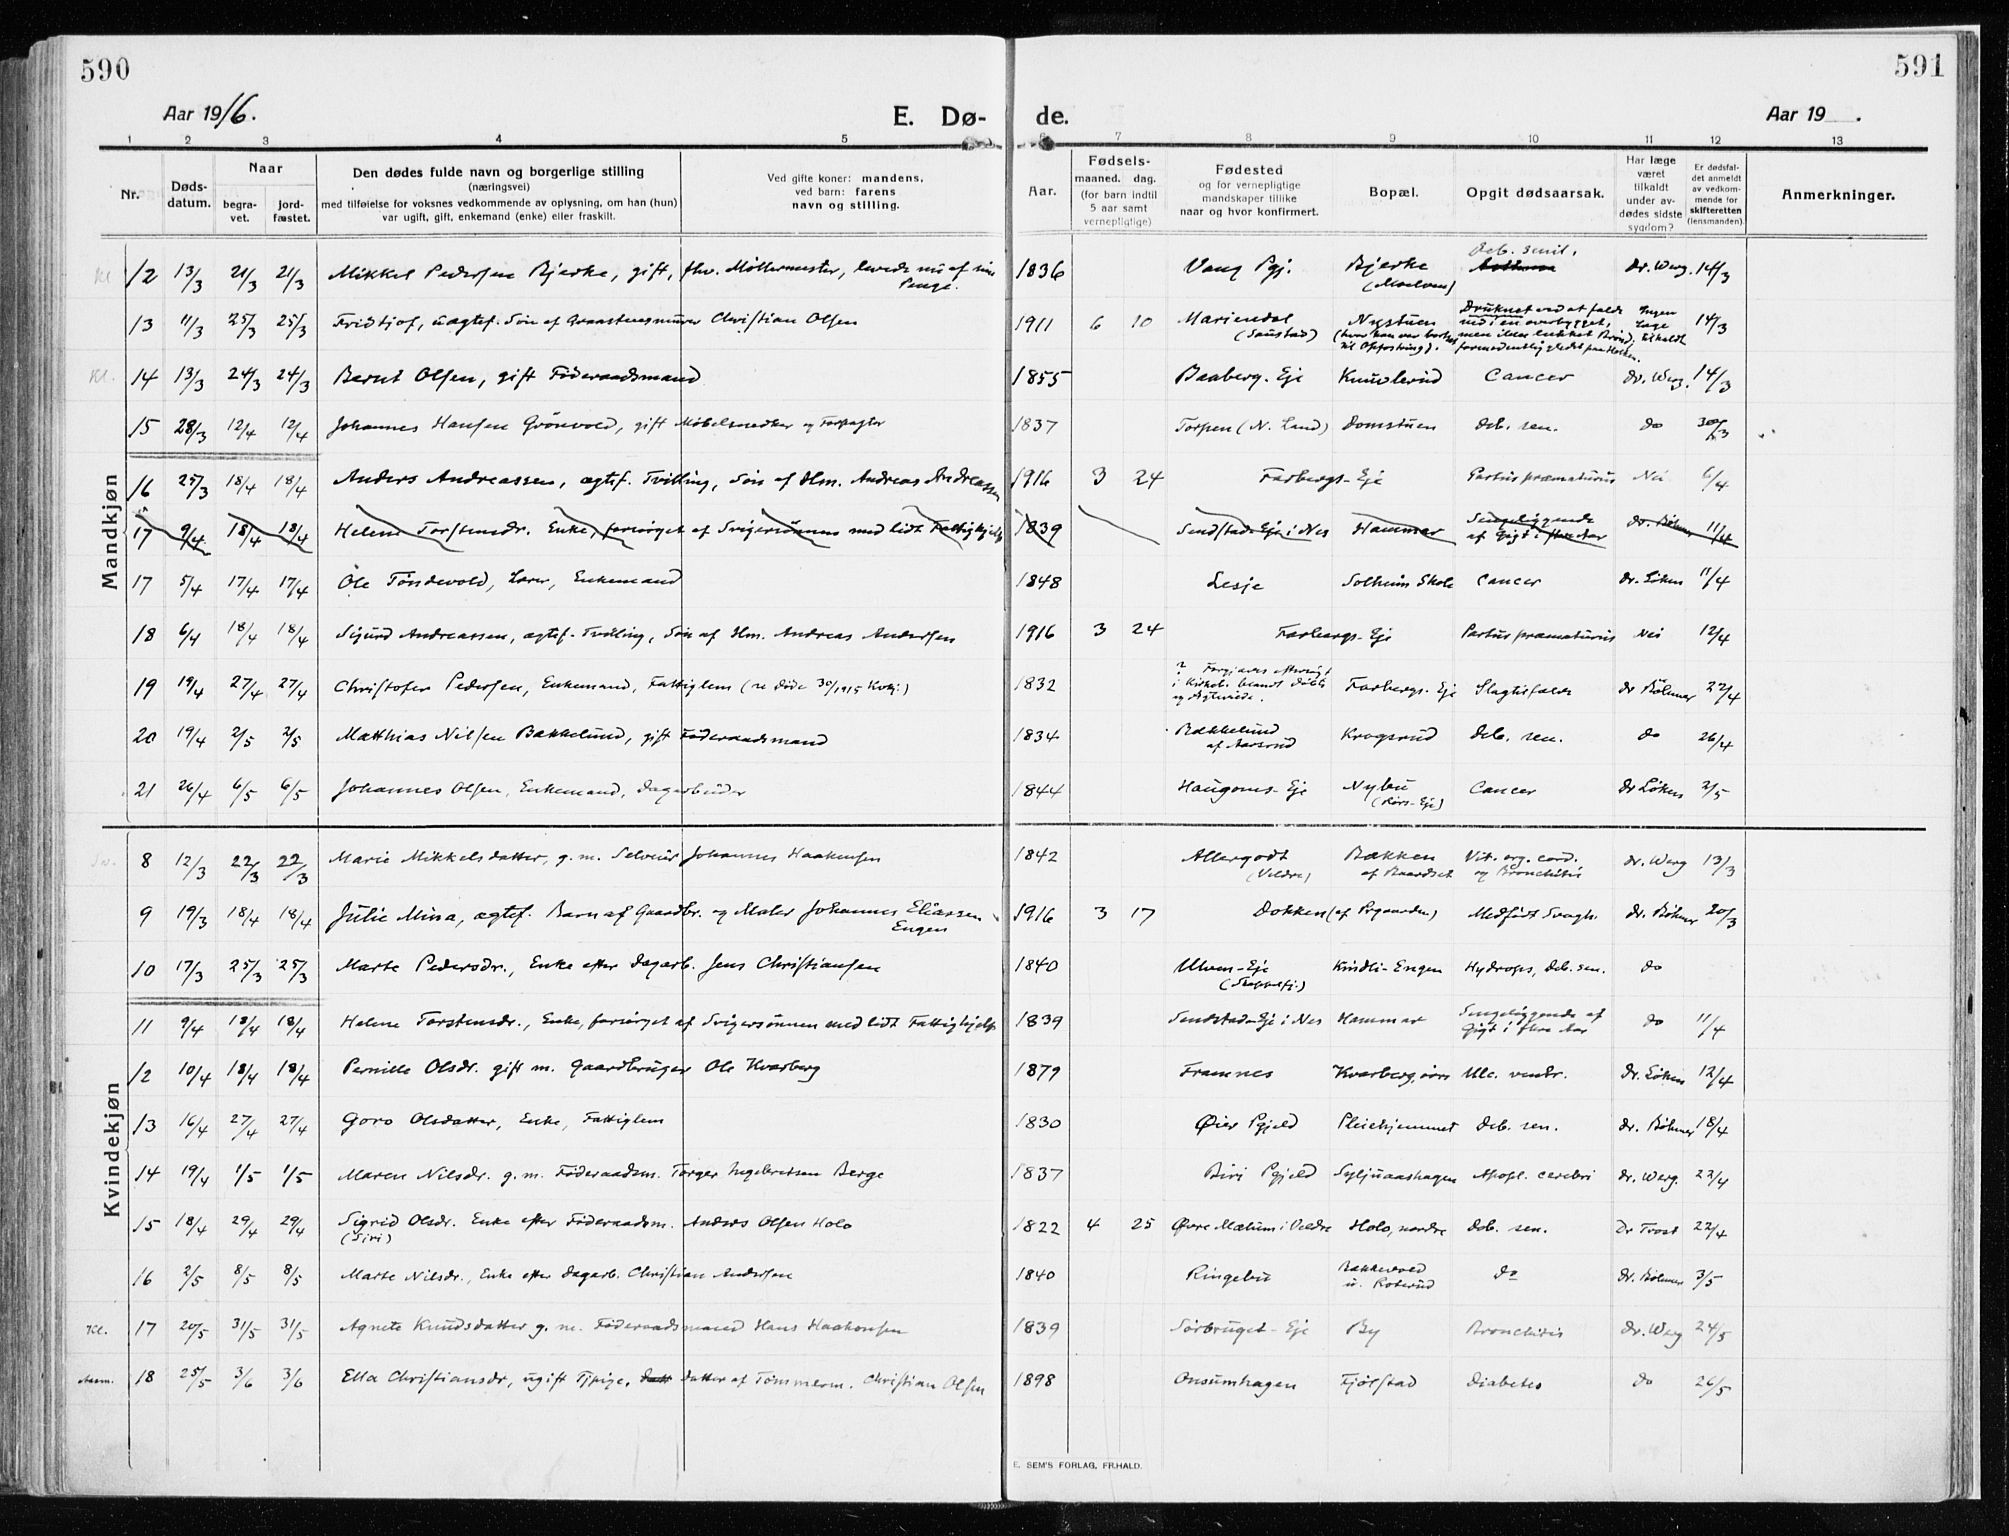 590
591
Aar 1916.
E. Dø-
de.
Aar 19 .
1 2 3 4 5 6 7 8 9 10 11 12 13
Nr.
Døds-
datum.
Naar
begra-
vet.
jord-
fæstet.
Den dødes fulde navn og borgerlige stilling
(næringsvei)
med tilføielse for voksnes vedkommende av oplysning, om han (hun)
var ugift, gift, enkemand (enke) eller fraskilt.
Ved gifte koner: mandens,
ved barn: farens
navn og stilling.
Aar.
Fødsels-
maaned. dag.
(for barn indtil
5 aar samt
vernepligtige)
Fødested
og for vernepligtige
mandskaper tillike
naar og hvor konfirmert.
Bopæl.
Opgit dødsaarsak.
Har læge
været
tilkaldt
under av-
dødes sidste
sygdom?
Er dødsfal-
det anmeldt
av vedkom-
mende for
skifteretten
(lensmanden).
Anmerkninger.
Mandkjøn
Kl 12 13/3 21/3 21/3 Mikkel Pedersen Bjerke, gift, fhv. Møllermester, levede nu af sine Penge. 1836 Vang Pgj. Bjerke (Moelven) Deb. senil. Asthma Dr. Werg. 14/3
13 11/3 25/3 25/3 Fridtjof, uagtef. Søn af Graastensmurer Christian Olsen 1911 6 10 Mariendal (Saustad) Nystuen (hvor han var bortsat til Opfostring). Druknet ved at falde ned i en overbygget, men ikke lukket Brønd, formodentlig gledet paa Holken. Ingen Læge tilkaldt 14/3
Kl. 14 13/3 24/3 24/3 Bernt Olsen, gift Føderaadsmand 1855 Baaberg. Eje Knuvlerud Cancer dr. Werg. 14/3
15 28/3 12/4 12/4 Johannes Hansen Grönvold, gift Møbelsnedker og Forpagter 1837 Torpen (N. Land) Domstuen deb. sen. do 30/3
16 25/3 18/4 18/4 Anders Andreassen, ægtef. Tvilling, Søn af Hm. Andreas Andreassen 1916 3 24 Farbergs-Eje Partus præmaturus Nei 6/4
17 9/4 18/4 18/4 Helene Torstensdr. Enke, forsørget af Svigersønnen med lidt Fattighjelp 1839 Sendstad-Eje i Nes Hammer Sengeliggende af Gigt i flere Aar dr. Bøhmer 11/4
17 5/4 17/4 17/4 Ole Tøndevold, Lærer, Enkemand 1848 Lesje Solheim Skole Cancer dr. Løken 11/4
18 6/4 18/4 18/4 Sigurd Andreassen, ægtef. Tvilling, Søn af Hm. Andreas Andersen 1916 3 24 Farbergs-Eje Partus præmaturus Nei 12/4
19 19/4 27/4 27/4 Christofer Pedersen, Enkemand, Fattiglem (se døde 30/1915 Kvkj.) 1832 ? Forgjæves eftersøgt i Kirkeb. blandt døbte og døpteviede. Farbergs-Eje Slagtilfælde dr Bøhmer 22/4
20 19/4 2/5 2/5 Matthias Nilsen Bakkelund, gift Føderaadsmand 1834 Bakkelund af Aarsrud Krogsrud deb. sen. do 26/4
21 26/4 6/5 6/5 Johannes Olsen, Enkemand, dagarbeider 1844 Haugoms-Eje Nybu (Rørs-Eje) Cancer dr Løken 2/5
Kvindekjøn
8 12/3 22/3 22/3 Marie Mikkelsdatter, g. m. Selveier Johannes Haakensen 1842 Allergodt (Veldre) Bækken af Baardset Vit. org. cord. og Bronchitis dr. Werg 13/3
9 19/3 18/4 18/4 Julie Mina, ægtef. Barn af Gaardbr. og Maler Johannes Eliassen Engen 1916 3 17 Dokken (af Prgaarden) Medfødt Svagh. dr. Bøhmer 20/3
10 17/3 25/3 25/3 Marte Pedersdr., Enke efter dagarb. Jens Christiansen 1840 Ulven-Eje Kindli-Engen Hydrops, deb. sen. do
11 9/4 18/4 18/4 Helene Torstensdr., Enke, forsørget af Svigersønnen med lidt Fattighjelp 1839 Sendstad-Eje i Nes Hammer Sengeliggende af Gigt i flere Aar do 11/4
12 10/4 18/4 18/4 Pernille Olsdr. gift m. Gaardbruger Ole Kvarberg 1879 Framnes Kvarberg, øvre Ulc. ventr. dr. Løken 12/4
13 16/4 27/4 27/4 Goro Olsdatter, Enke, Fattiglem 1830 Øier Pgjeld Pleiehjemmet deb. sen. dr. Bøhmer 18/4
14 19/4 1/5 1/5 Maren Nilsdr. g. m. Føderaadsm. Torger Ingebretsen Berge 1837 Biri Pgjeld Syljuaashagen Apopl. cerebri dr. Werg. 22/4
15 18/4 29/4 29/4 Sigrid Olsdr. Enke efter Føderaadsm. Anders Olsen Holo (Siri) 1822 4 25 Øvre Mælum i Veldre Holo, nordre deb. sen. Dr Frost 22/4
16 2/5 8/5 8/5 Marte Nilsdr., Enke efter dagarb. Christian Andersen 1840 Ringebu Bakkevold u. Roterud do dr. Bøhmer 3/5
Kl. 17 20/5 31/5 31/5 Agnete Knudsdatter g. m. Føderaadsmand Hans Haakonsen 1839 Sørbruget-Eje By Bronchitis dr. Werg 24/5
18 25/5 3/6 3/6 Ella Christiansdr, ugift Tjpige, Datt datter af Tømmerm. Christian Olsen 1898 Onsumhagen Fjølstad Diabetes do 26/5
E. SEM'S FORLAG, FR.HALD.